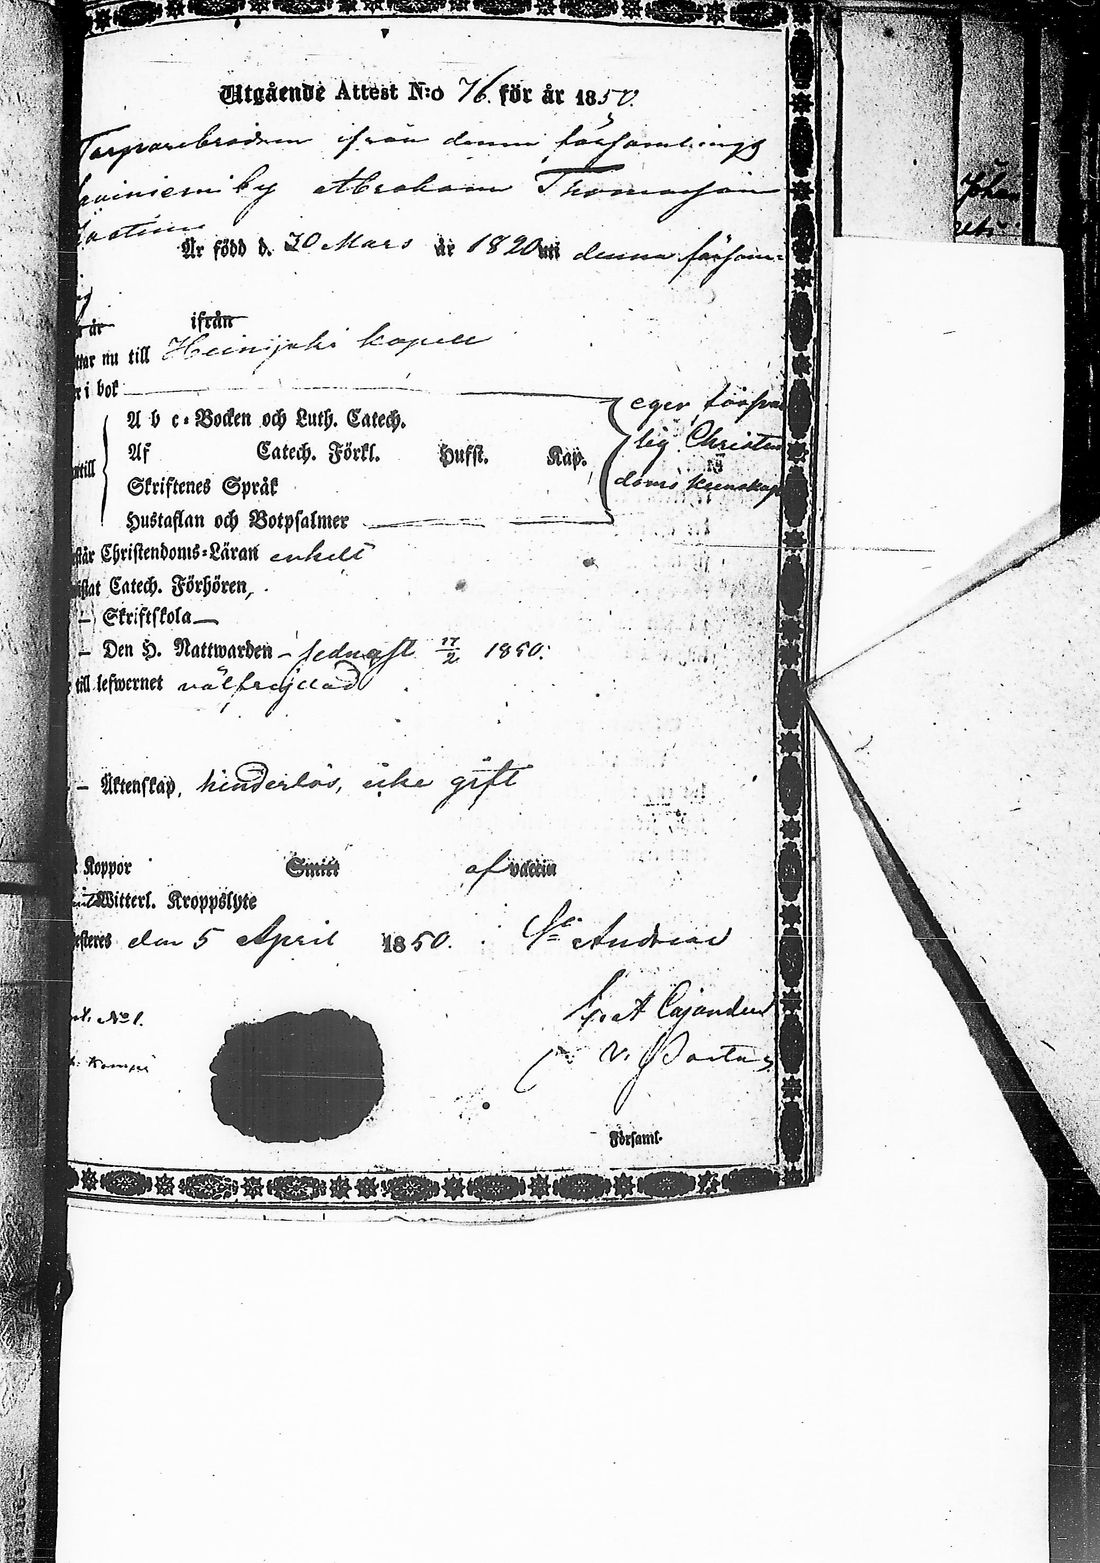 Utgående Attest N:o 76. för år 1850.
Torparebrodren från denna församlings
by Abraham Thomasson
Är född d. 30 Mars år 1820 uti denna försam-
år ifrån
ttar nu till Heinijoki kapell
r i bok
A b c-Bocken och Luth. Catech.
Af Catech. Förkl. Hufst. Kap.
Skriftenes Språk
Hustaflan och Botpsalmer
eger försvar
lig Christen
doms kunskap
ntill
står Christendoms-Läran enkelt
wistat Catech. Förhören,
— Skriftskola —
— Den H. Nattwarden — sednast 17/2 1850.
till lefwernet välfrejdad
— Äktenskap, hinderlös, icke gift
t Koppor Smitt af vaccin
Witterl. Kroppslyte
esteres den 5 April 1850. St Andreae
A Cajander
v. Pastor
No 1.
Församl.
Johan